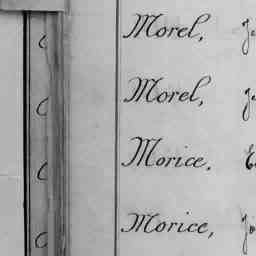 Morel,
Morel,
Morice.
Morice,